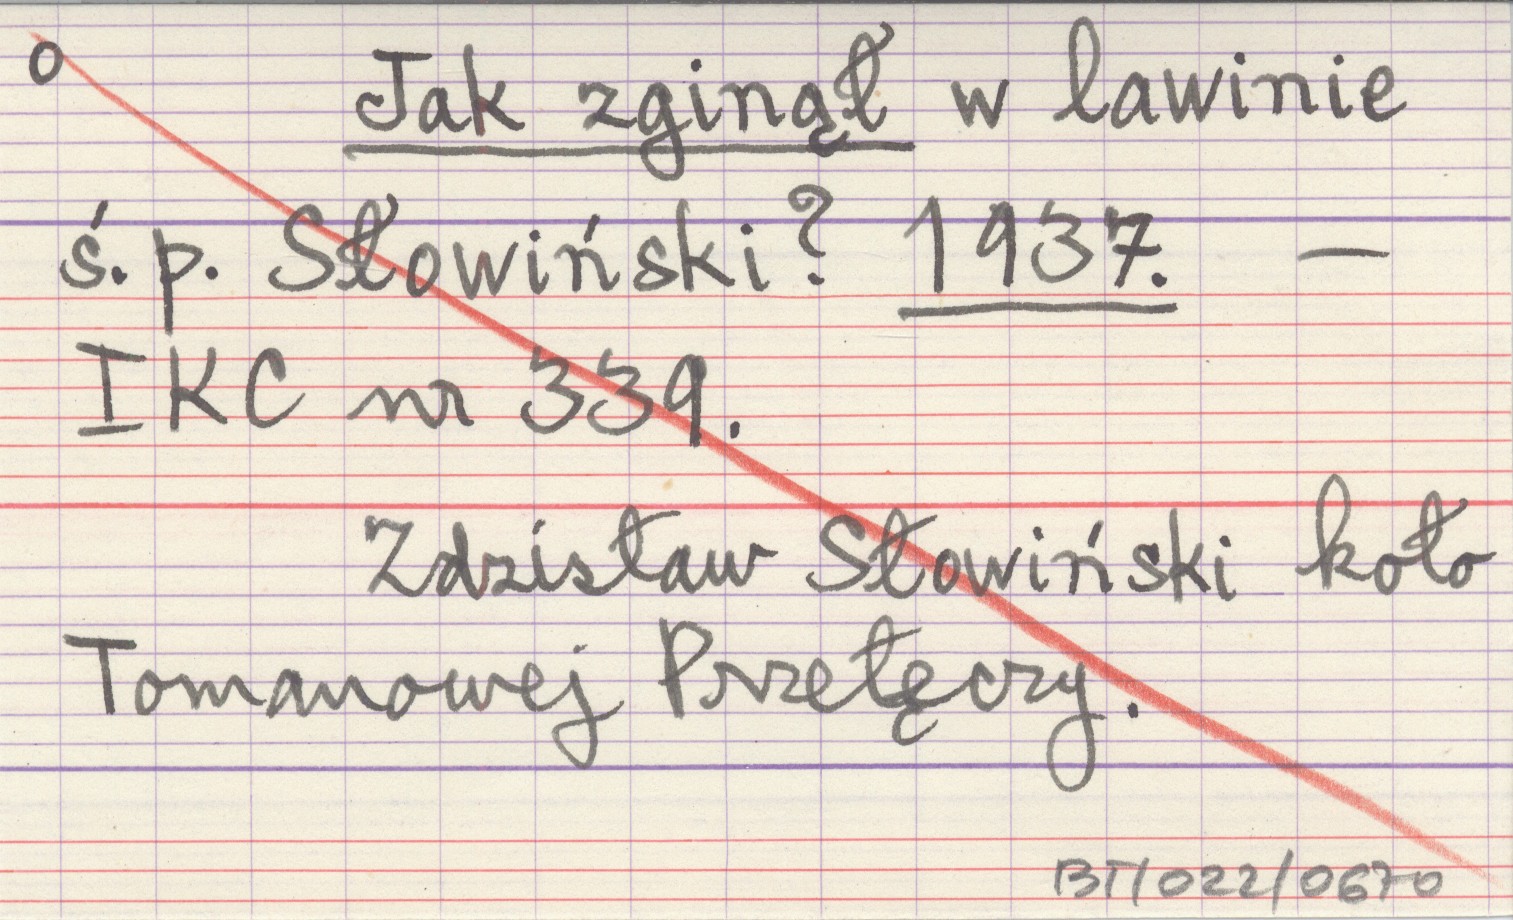 o Jak zginął w lawinie
ś.p. Słowiński? 1937. —
IKC nr 339.
Zdzisław Słowiński koło
Tomanowej Przełęczy.
BT/022/0670